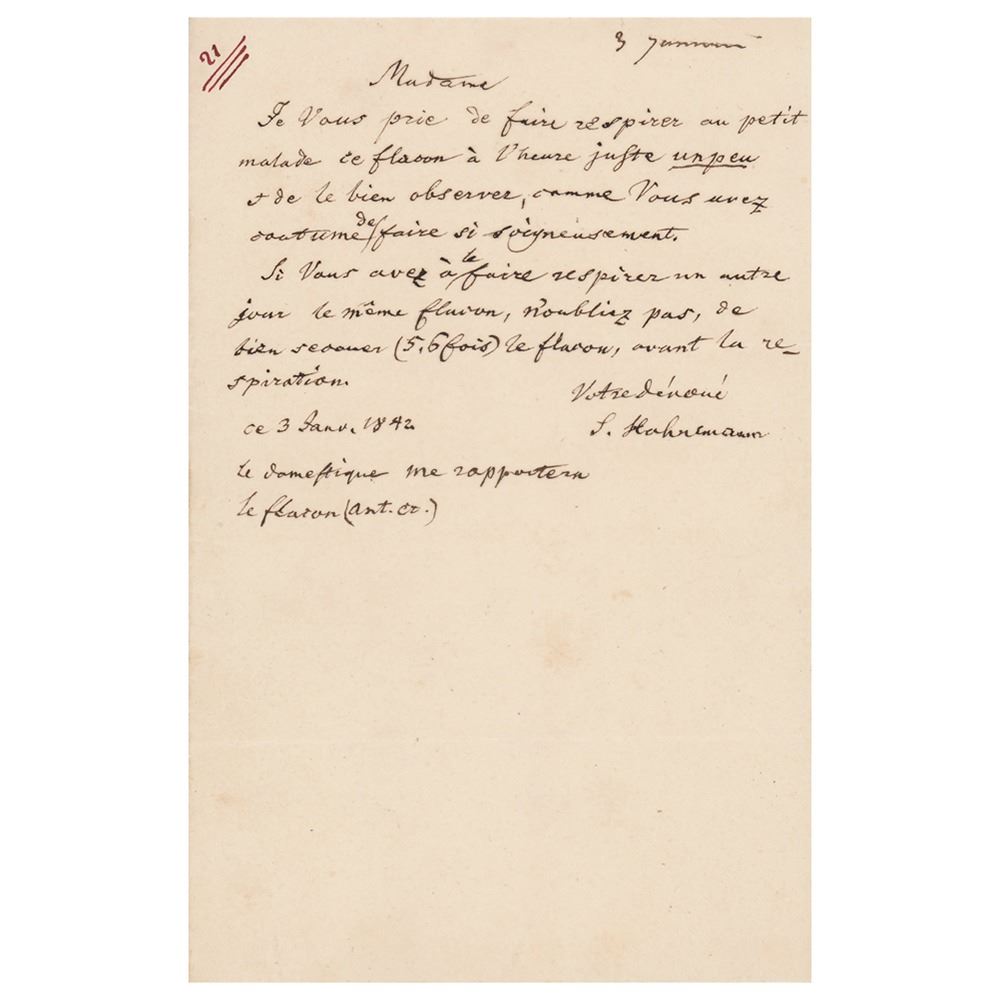 21
3 Janvier
Madame
Je Vous prie de faire respirer au petit
malade ce flacon à l'heure juste un peu
et de le bien observer, comme Vous avez
coutume de faire si soigneusement.
Si Vous avez à le faire respirer un autre
jour le même flacon, n'oubliez pas, de
bien secouer (5, 6 fois) le flacon, avant la re-
spiration.
Votre dévoué
ce 3 Janv. 1842
S. Hahnemann
Le domestique me rapportera
le flacon (ant. cr.)